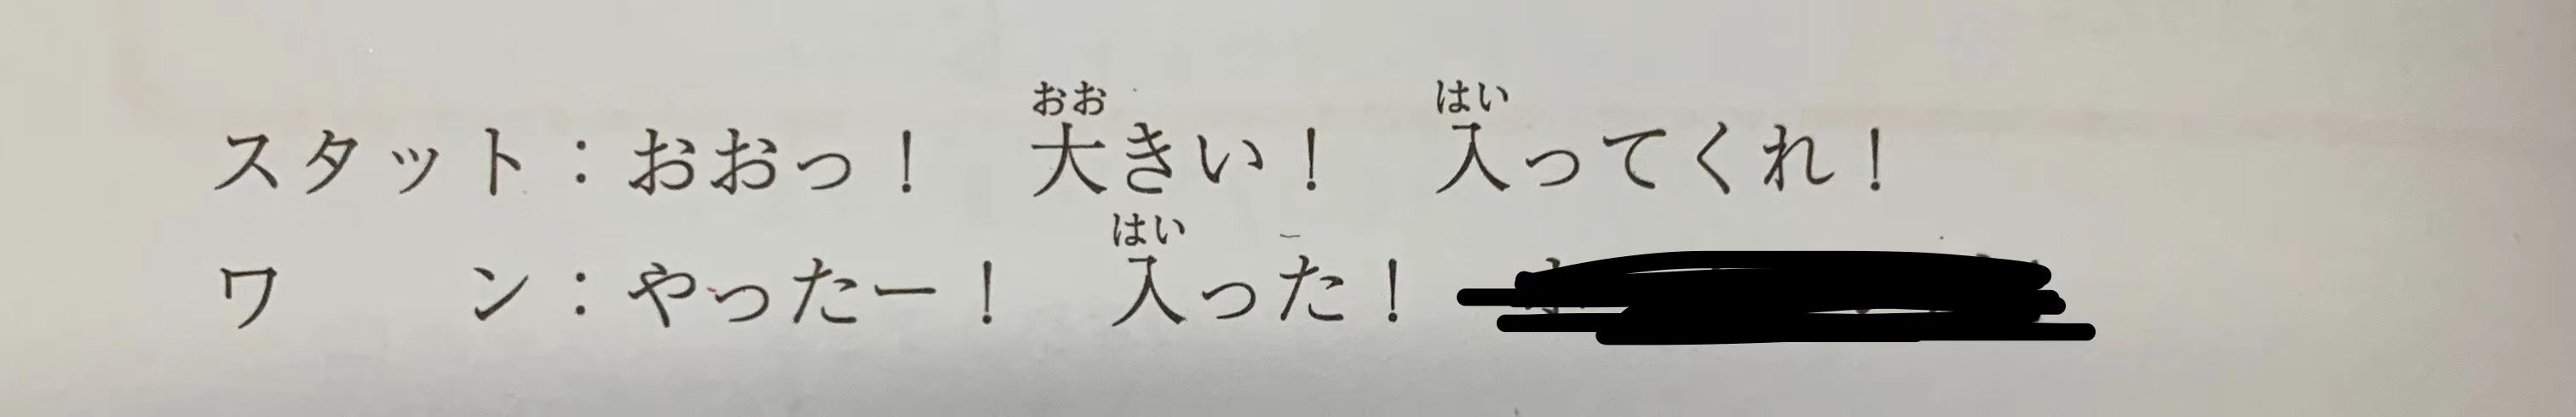 スタット：おおっ！　大きい！　入ってくれ！
ワン：やったー！　入った！